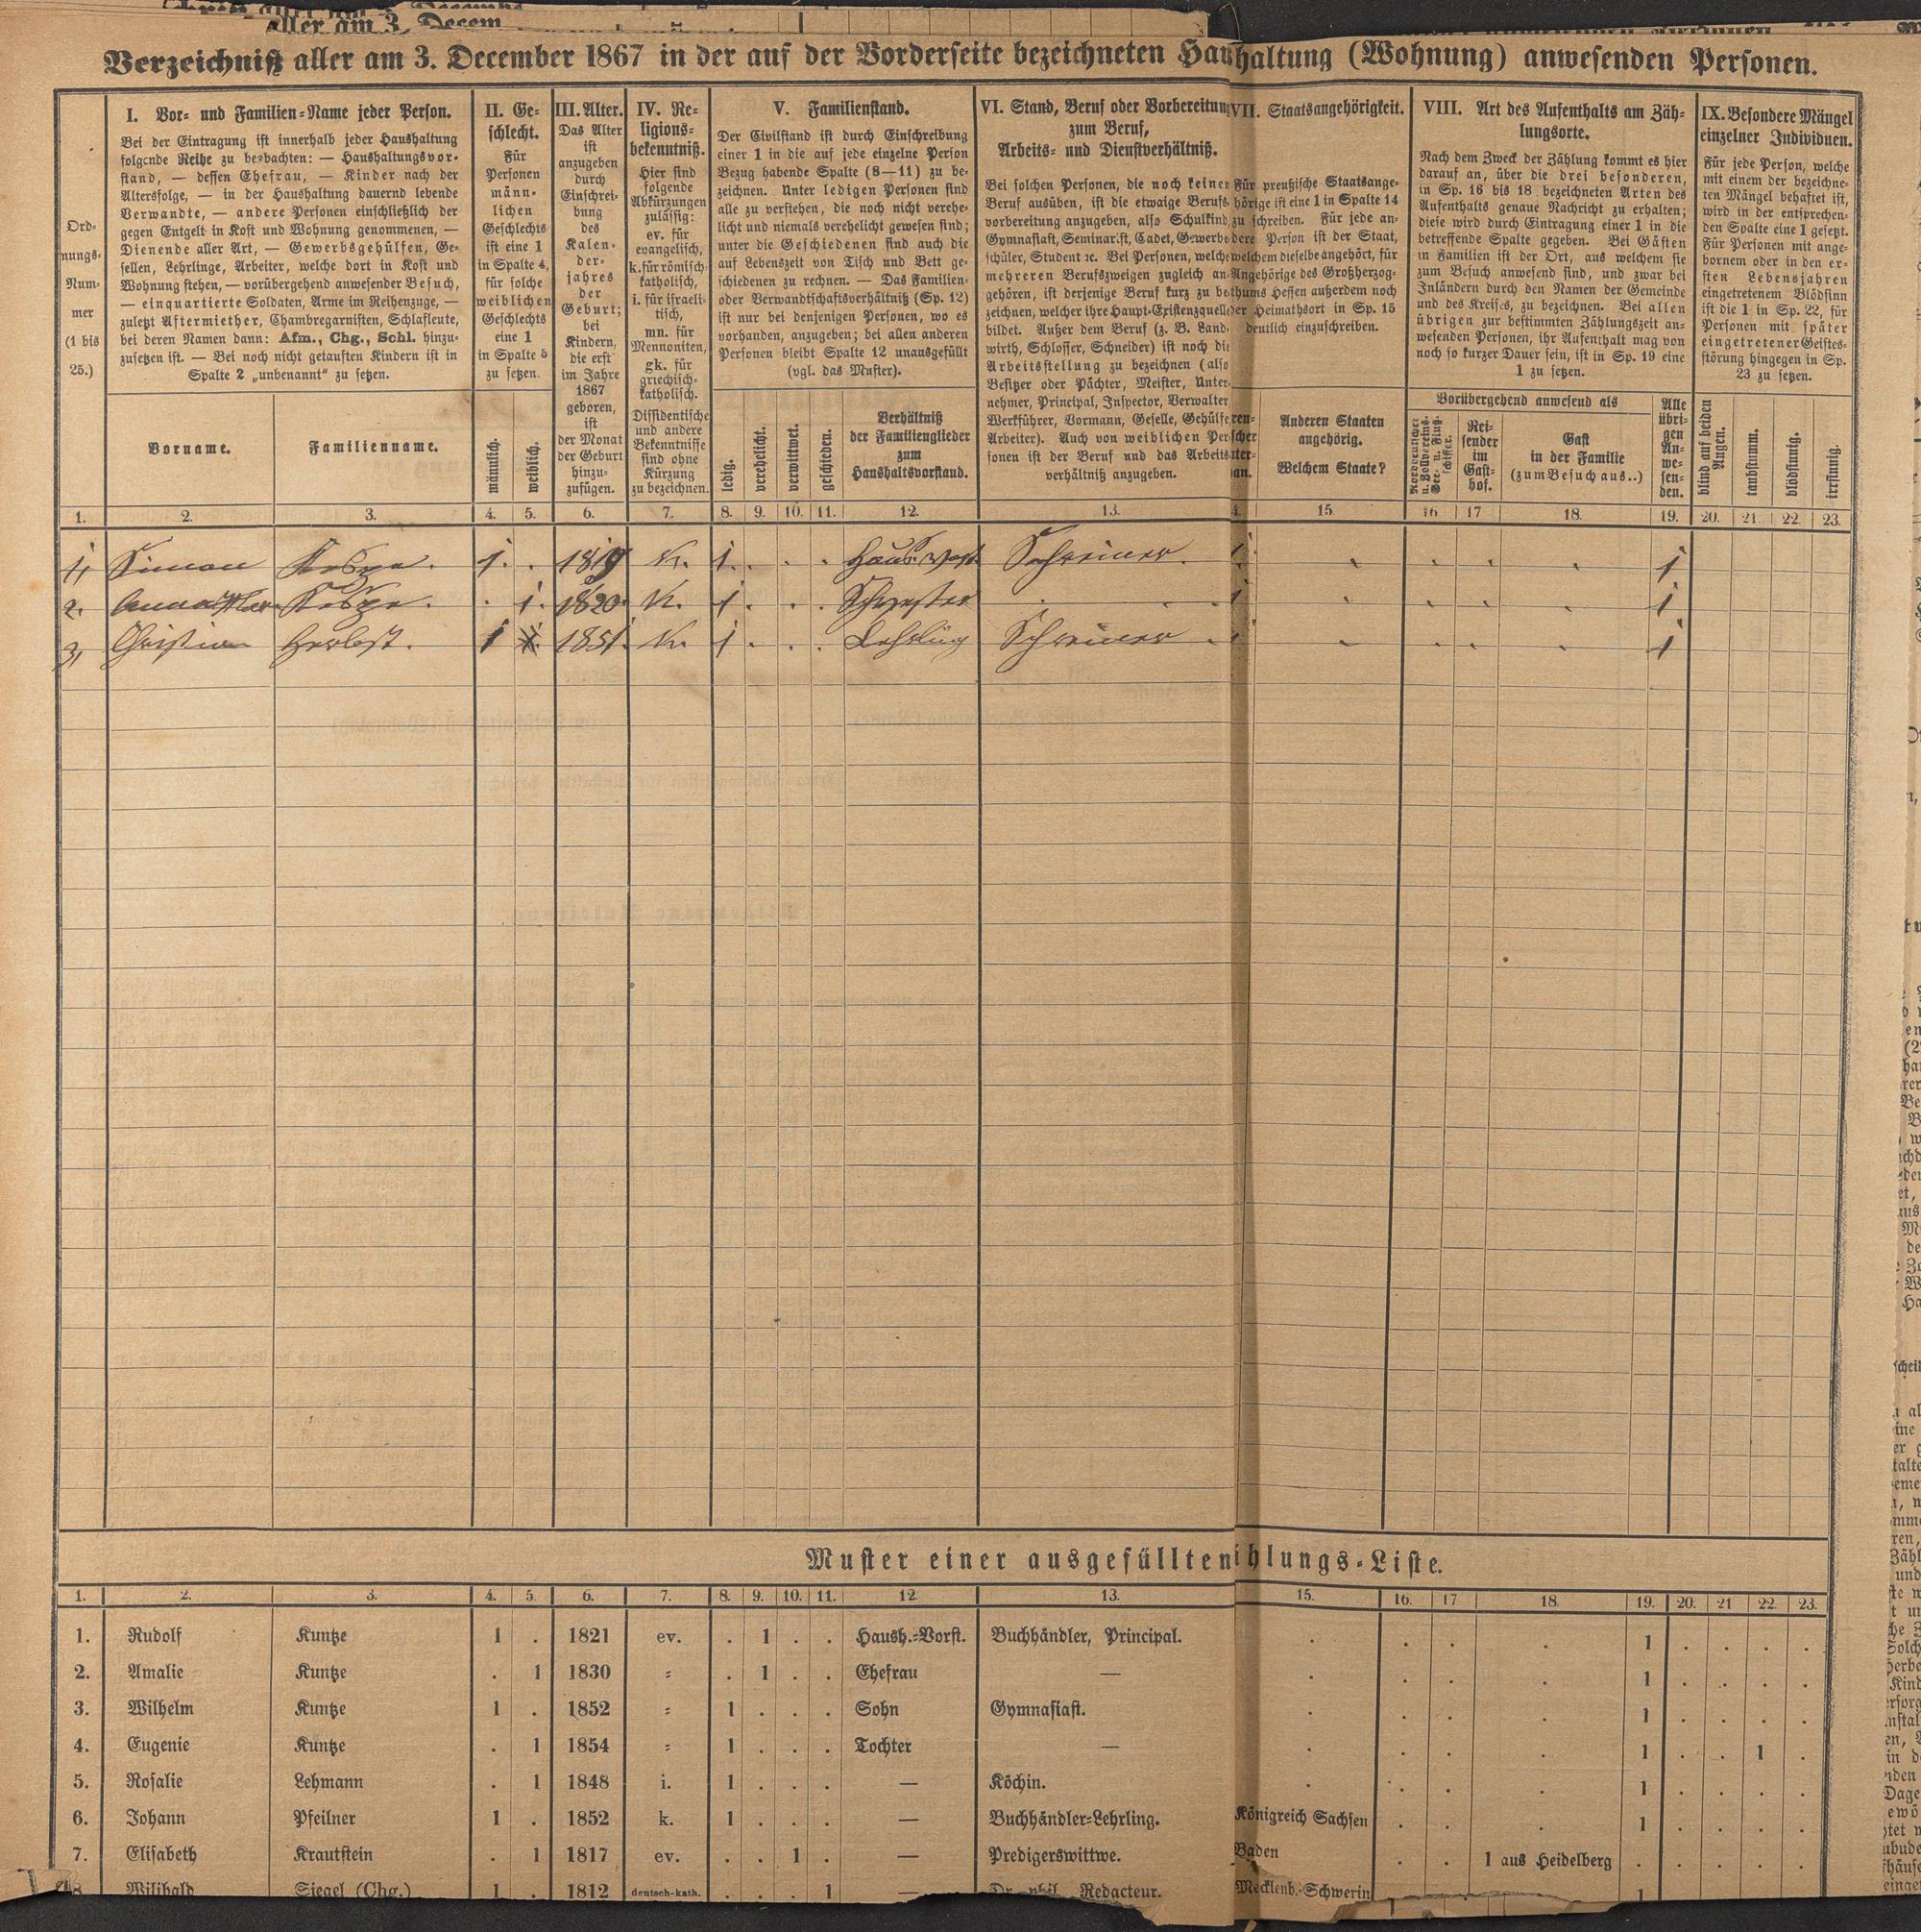 Verzeichniß aller am 3. December 1867 in der auf der Vorderseite bezeichneten Haushaltung (Wohnung) anwesenden Personen.
Ord-
nungs-
Num-
mer
(1 bis
25.)
I. Vor- und Familien-Name jeder Person.
Bei der Eintragung ist innerhalb jeder Haushaltung
folgende Reihe zu beobachten: — Haushaltungsvor-
stand, — dessen Ehefrau, — Kinder nach der
Altersfolge, — in der Haushaltung dauernd lebende
Verwandte, — andere Personen einschließlich der
gegen Entgelt in Kost und Wohnung genommenen, —
Dienende aller Art, — Gewerbsgehülfen, Ge-
sellen, Lehrlinge, Arbeiter, welche dort in Kost und
Wohnung stehen, — vorübergehend anwesender Besuch,
— einquartierte Soldaten, Arme im Reihenzuge, —
zuletzt Aftermiether, Chambregarnisten, Schlafleute,
bei deren Namen dann: Afm., Chg., Schl. hinzu-
zusetzen ist. — Bei noch nicht getauften Kindern ist in
Spalte 2 „unbenannt" zu setzen.
Vorname. Familienname.
II. Ge-
schlecht.
Für
Personen
männ-
lichen
Geschlechts
ist eine 1
in Spalte 4,
für solche
weiblichen
Geschlechts
eine 1
in Spalte 5
zu setzen.
männlich. weiblich.
III. Alter.
Das Alter
ist
anzugeben
durch
Einschrei-
bung
des
Kalen-
der-
jahres
der
Geburt;
bei
Kindern,
die erst
im Jahre
1867
geboren,
ist
der Monat
der Geburt
hinzu-
zufügen.
IV. Re-
ligions-
bekenntniß.
Hier sind
folgende
Abkürzungen
zulässig:
ev. für
evangelisch,
k. für römisch-
katholisch,
i. für israeli-
tisch,
mn. für
Mennoniten,
gk. für
griechisch-
katholisch.
Dissidentische
und andere
Bekenntnisse
sind ohne
Kürzung
zu bezeichnen.
V. Familienstand.
Der Civilstand ist durch Einschreibung
einer 1 in die auf jede einzelne Person
Bezug habende Spalte (8—11) zu be-
zeichnen. Unter ledigen Personen sind
alle zu verstehen, die noch nicht verehe-
licht und niemals verehelicht gewesen sind;
unter die Geschiedenen sind auch die
auf Lebenszeit von Tisch und Bett ge-
schiedenen zu rechnen. — Das Familien-
oder Verwandtschaftsverhältniß (Sp. 12)
ist nur bei denjenigen Personen, wo es
vorhanden, anzugeben; bei allen anderen
Personen bleibt Spalte 12 unausgefüllt
(vgl. das Muster).
ledig. verehelicht. verwittwet. geschieden.
Verhältniß
der Familienglieder
zum
Haushaltsvorstand.
VI. Stand, Beruf oder Vorbereitung
zum Beruf,
Arbeits- und Dienstverhältniß.
Bei solchen Personen, die noch keinen
Beruf ausüben, ist die etwaige Berufs-
vorbereitung anzugeben, also Schulkind,
Gymnasiast, Seminarist, Cadet, Gewerbe-
schüler, Student ꝛc. Bei Personen, welche
mehreren Berufszweigen zugleich an-
gehören, ist derjenige Beruf kurz zu be-
zeichnen, welcher ihre Haupt-Existenzquelle
bildet. Außer dem Beruf (z. B. Land-
wirth, Schlosser, Schneider) ist noch die
Arbeitsstellung zu bezeichnen (also
Besitzer oder Pächter, Meister, Unter-
nehmer, Principal, Inspector, Verwalter,
Werkführer, Vormann, Geselle, Gehülfe,
Arbeiter). Auch von weiblichen Per-
sonen ist der Beruf und das Arbeits-
verhältniß anzugeben.
VII. Staatsangehörigkeit.
Für preußische Staatsange-
hörige ist eine 1 in Spalte 14
zu schreiben. Für jede an-
dere Person ist der Staat,
welchem dieselbe angehört, für
Angehörige des Großherzog-
thums Hessen außerdem noch
der Heimathsort in Sp. 15
deutlich einzuschreiben.
Anderen Staaten
angehörig.
Welchem Staate?
VIII. Art des Aufenthalts am Zäh-
lungsorte.
Nach dem Zweck der Zählung kommt es hier
darauf an, über die drei besonderen,
in Sp. 16 bis 18 bezeichneten Arten des
Aufenthalts genaue Nachricht zu erhalten;
diese wird durch Eintragung einer 1 in die
betreffende Spalte gegeben. Bei Gästen
in Familien ist der Ort, aus welchem sie
zum Besuch anwesend sind, und zwar bei
Inländern durch den Namen der Gemeinde
und des Kreises, zu bezeichnen. Bei allen
übrigen zur bestimmten Zählungszeit an-
wesenden Personen, ihr Aufenthalt mag von
noch so kurzer Dauer sein, ist in Sp. 19 eine
1 zu setzen.
Vorübergehend anwesend als
Norddeutscher
u. Vollvereins-
See- u. Fluß-
schiffer.
Rei-
sender
im
Gast-
hof.
Gast
in der Familie
(zum Besuch aus..)
Alle
übri-
gen
An-
we-
sen-
den.
IX. Besondere Mängel
einzelner Individuen.
Für jede Person, welche
mit einem der bezeichne-
ten Mängel behaftet ist,
wird in der entsprechen-
den Spalte eine 1 gesetzt.
Für Personen mit ange-
bornem oder in den er-
sten Lebensjahren
eingetretenem Blödsinn
ist die 1 in Sp. 22, für
Personen mit später
eingetretener Geistes-
störung hingegen in Sp.
23 zu setzen.
blind auf beiden
Augen. taubstumm. blödsinnig. irrsinnig.
1. 2. 3. 4. 5. 6. 7. 8. 9. 10. 11. 12. 13. 4. 15. 16 17 18. 19. 20. 21. 22. 23.
1, Simon 1. . 1819 K. 1. . . . Haus. Vost Schreiner. 1 1
2. . 1. 1820 K. 1 . . . Schwester 1 1
3, Christian Herbst. 1 1851. K. 1 . . . Lehrling Schreiner 1 1
Muster einer ausgefüllten ählungs-Liste.
1. 2. 3. 4. 5. 6. 7. 8. 9. 10. 11. 12. 13. 15. 16. 17 18. 19. 20. 21 22. 23.
1. Rudolf Kuntze 1 . 1821 ev. . 1 . . Haush.-Vorst. Buchhändler, Principal. . . . . 1 . . . .
2. Amalie Kuntze . 1 1830 = . 1 . . Ehefrau — . . . . 1 . . . .
3. Wilhelm Kuntze 1 . 1852 = 1 . . . Sohn Gymnasiast. . . . . 1 . . . .
4. Eugenie Kuntze . 1 1854 = 1 . . . Tochter — . . . . 1 . . 1 .
5. Rosalie Lehmann . 1 1848 i. 1 . . . — Köchin. . . . . 1 . . . .
6. Johann Pfeilner 1 . 1852 k. 1 . . . — Buchhändler-Lehrling. Königreich Sachsen . . . 1 . . . .
7. Elisabeth Krautstein . 1 1817 ev. . . 1 . — Predigerswittwe. Baden . . 1 aus Heidelberg . . . . .
8. Wilibald Siegel (Chg.) 1 . 1812 deutsch-kath. . . . 1 — Dr. phil. Redacteur. Mecklenb.-Schwerin 1